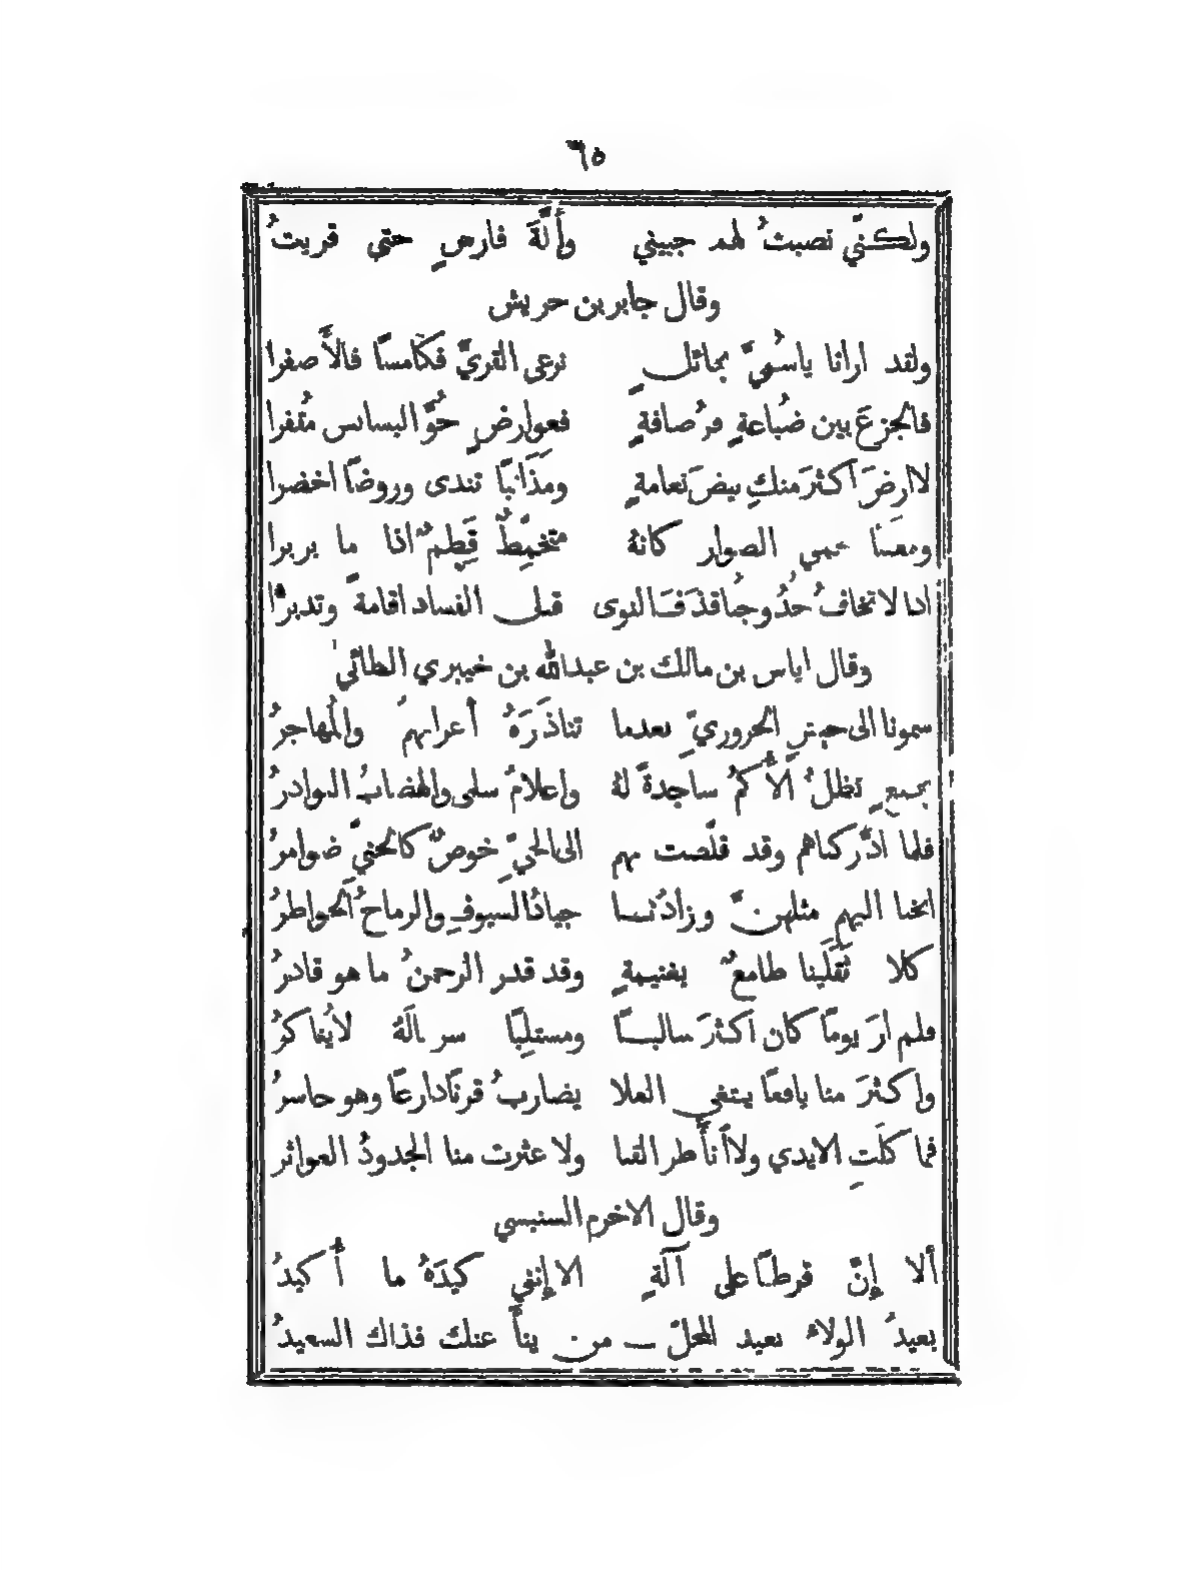 ٦٥
ولكنّي نصبتُ لهم جبيني وأَلَّةَ فارسٍ حتى قريتُ
وقال جابر بن حريش
ولقد ارانا ياسُميَّ بحائلٍ نرعى القريَّ فكامسًا فالأَصفرا
فالجزعَ بين ضُباعةٍ فرُصافةٍ فعوارضٍ حُوَّ البسابس مُقفرا
لا ارضَ اكثرَ منكِ بيضَ نعامةٍ ومَذَانبًا تندى وروضًا اخضرا
ومعينًا يحمي الصوار كانهُ متخمّطٌ قَطِمٌ اذا ما بربرا
اذ لا تخافُ حُدُوجُنا قذَفَ النوى قبل الفساد اقامةً وتديرُّا
وقال اياس بن مالك بن عبدالله بن خيبري الطائي
سمونا الى جيشِ الحروريِّ بعدما تناذَرَهُ أعرابهمُ والمُهاجرُ
بجمعٍ تظلُّ الأُكمُ ساجدةً لهُ واعلامُ سلمى والهضابُ النوادرُ
فلما ادَّركناهم وقد قلّصت بهم الى الحيِّ خوصٌ كالحنيّ ضوامرُ
انخنا اليهم مثلهنَّ وزادُنا جيادُ السيوفِ والرماحُ الخواطرُ
كلا ثَقَلَينا طامعٌ بغنيمةٍ وقد قدر الرحمنُ ما هو قادرُ
فلم ارَ يومًا كان اكثرَ سالبًا ومستلِبًا سربالَهُ لايُناكرُ
واكثرَ منا يافعًا يبتغي العلا يضاربُ قرنًا دارعًا وهو حاسرُ
فما كلّتِ الايدي ولا انأَطر القنا ولا عثرت منا الجدودُ العواثر
وقال الاخرم السنبسي
ألا إنّ قرطًا على آلةٍ الا إنني كيدَهُ ما أَكيدُ
بعيدُ الولاءُ بعيد المحلّ من ينأَ عنك فذاك السعيدُ